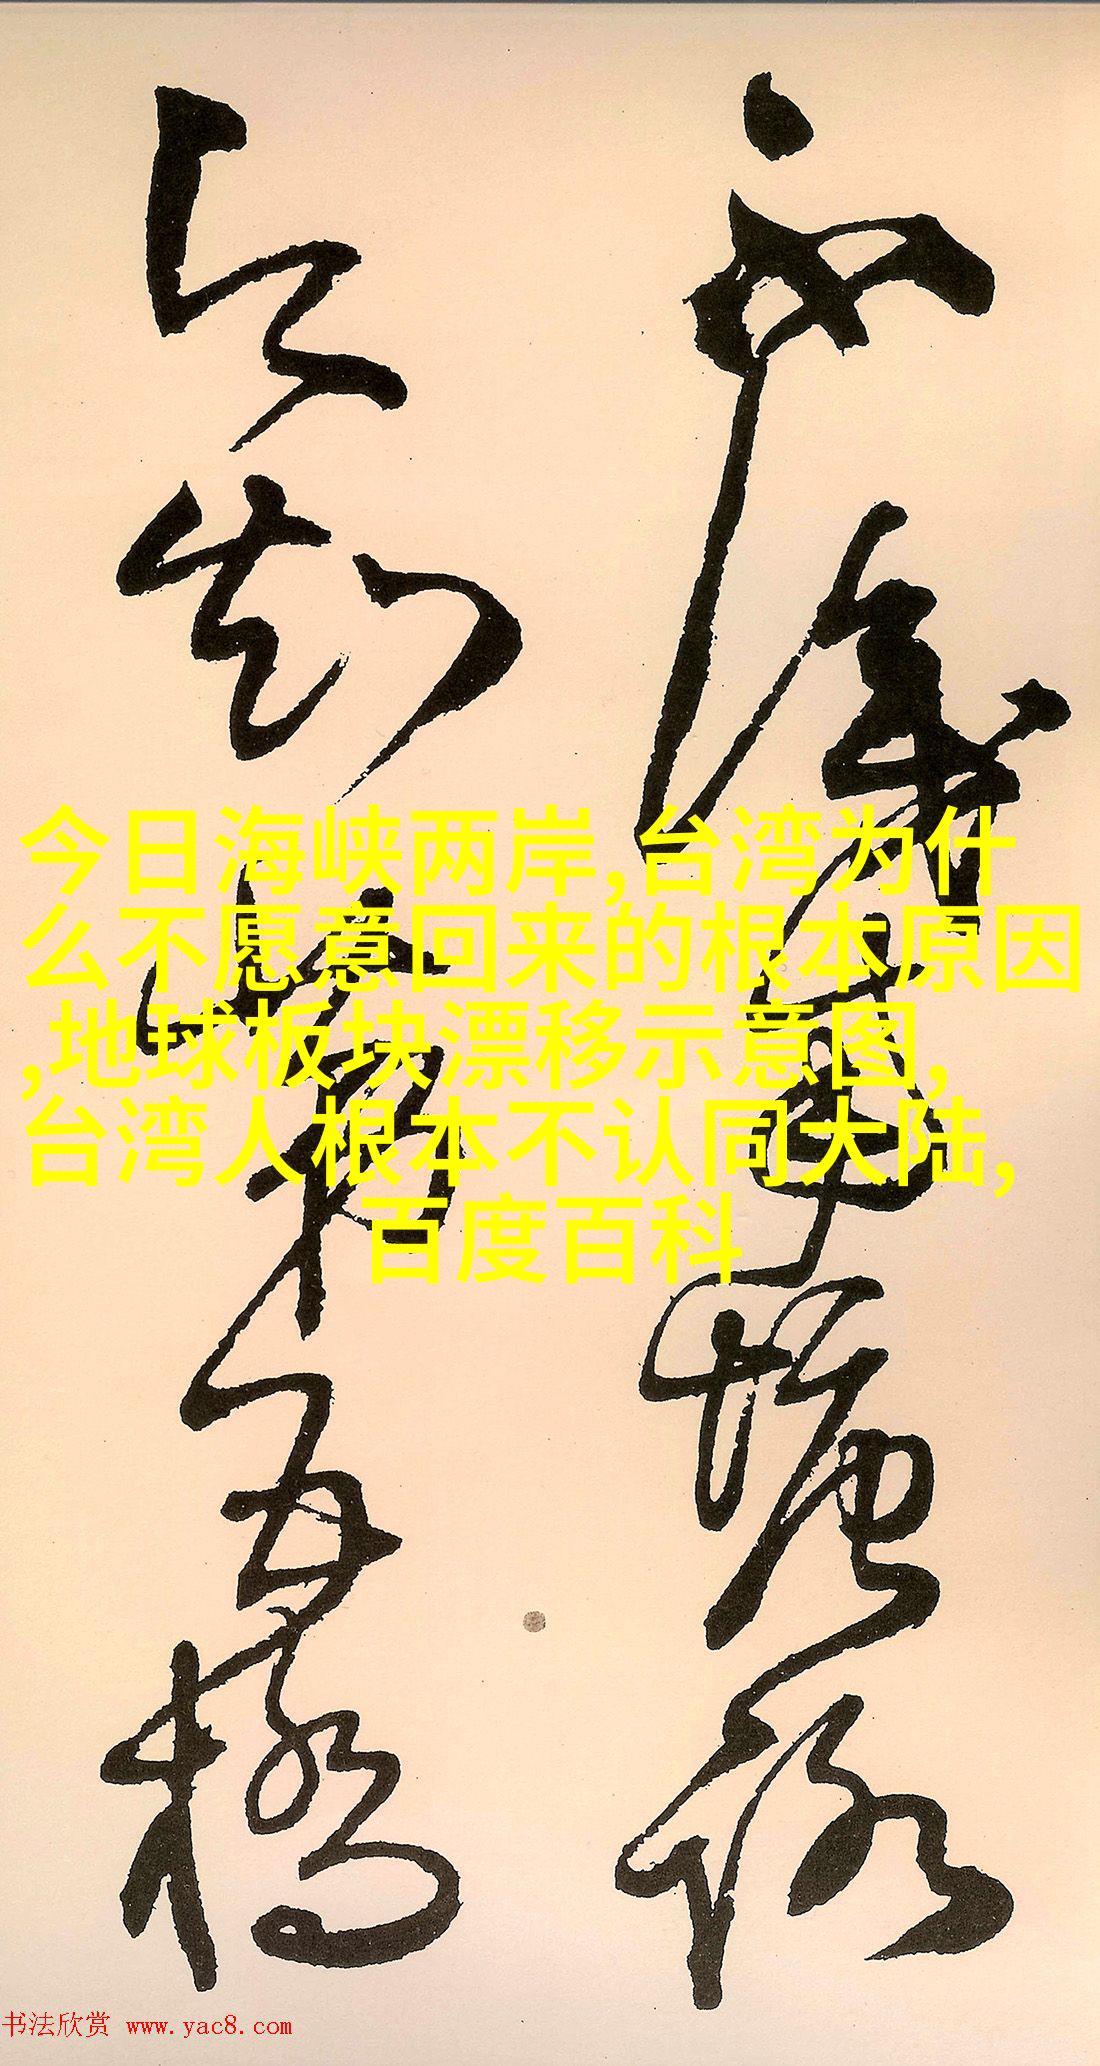 不識南塘路
今知第五橋
今日海峡两岸,台湾为什
么不愿意回来的根本原因
,地球板块漂移示意图,
台湾人根本不认同大陆,
百度百科
书法欣赏 www.yac8.com